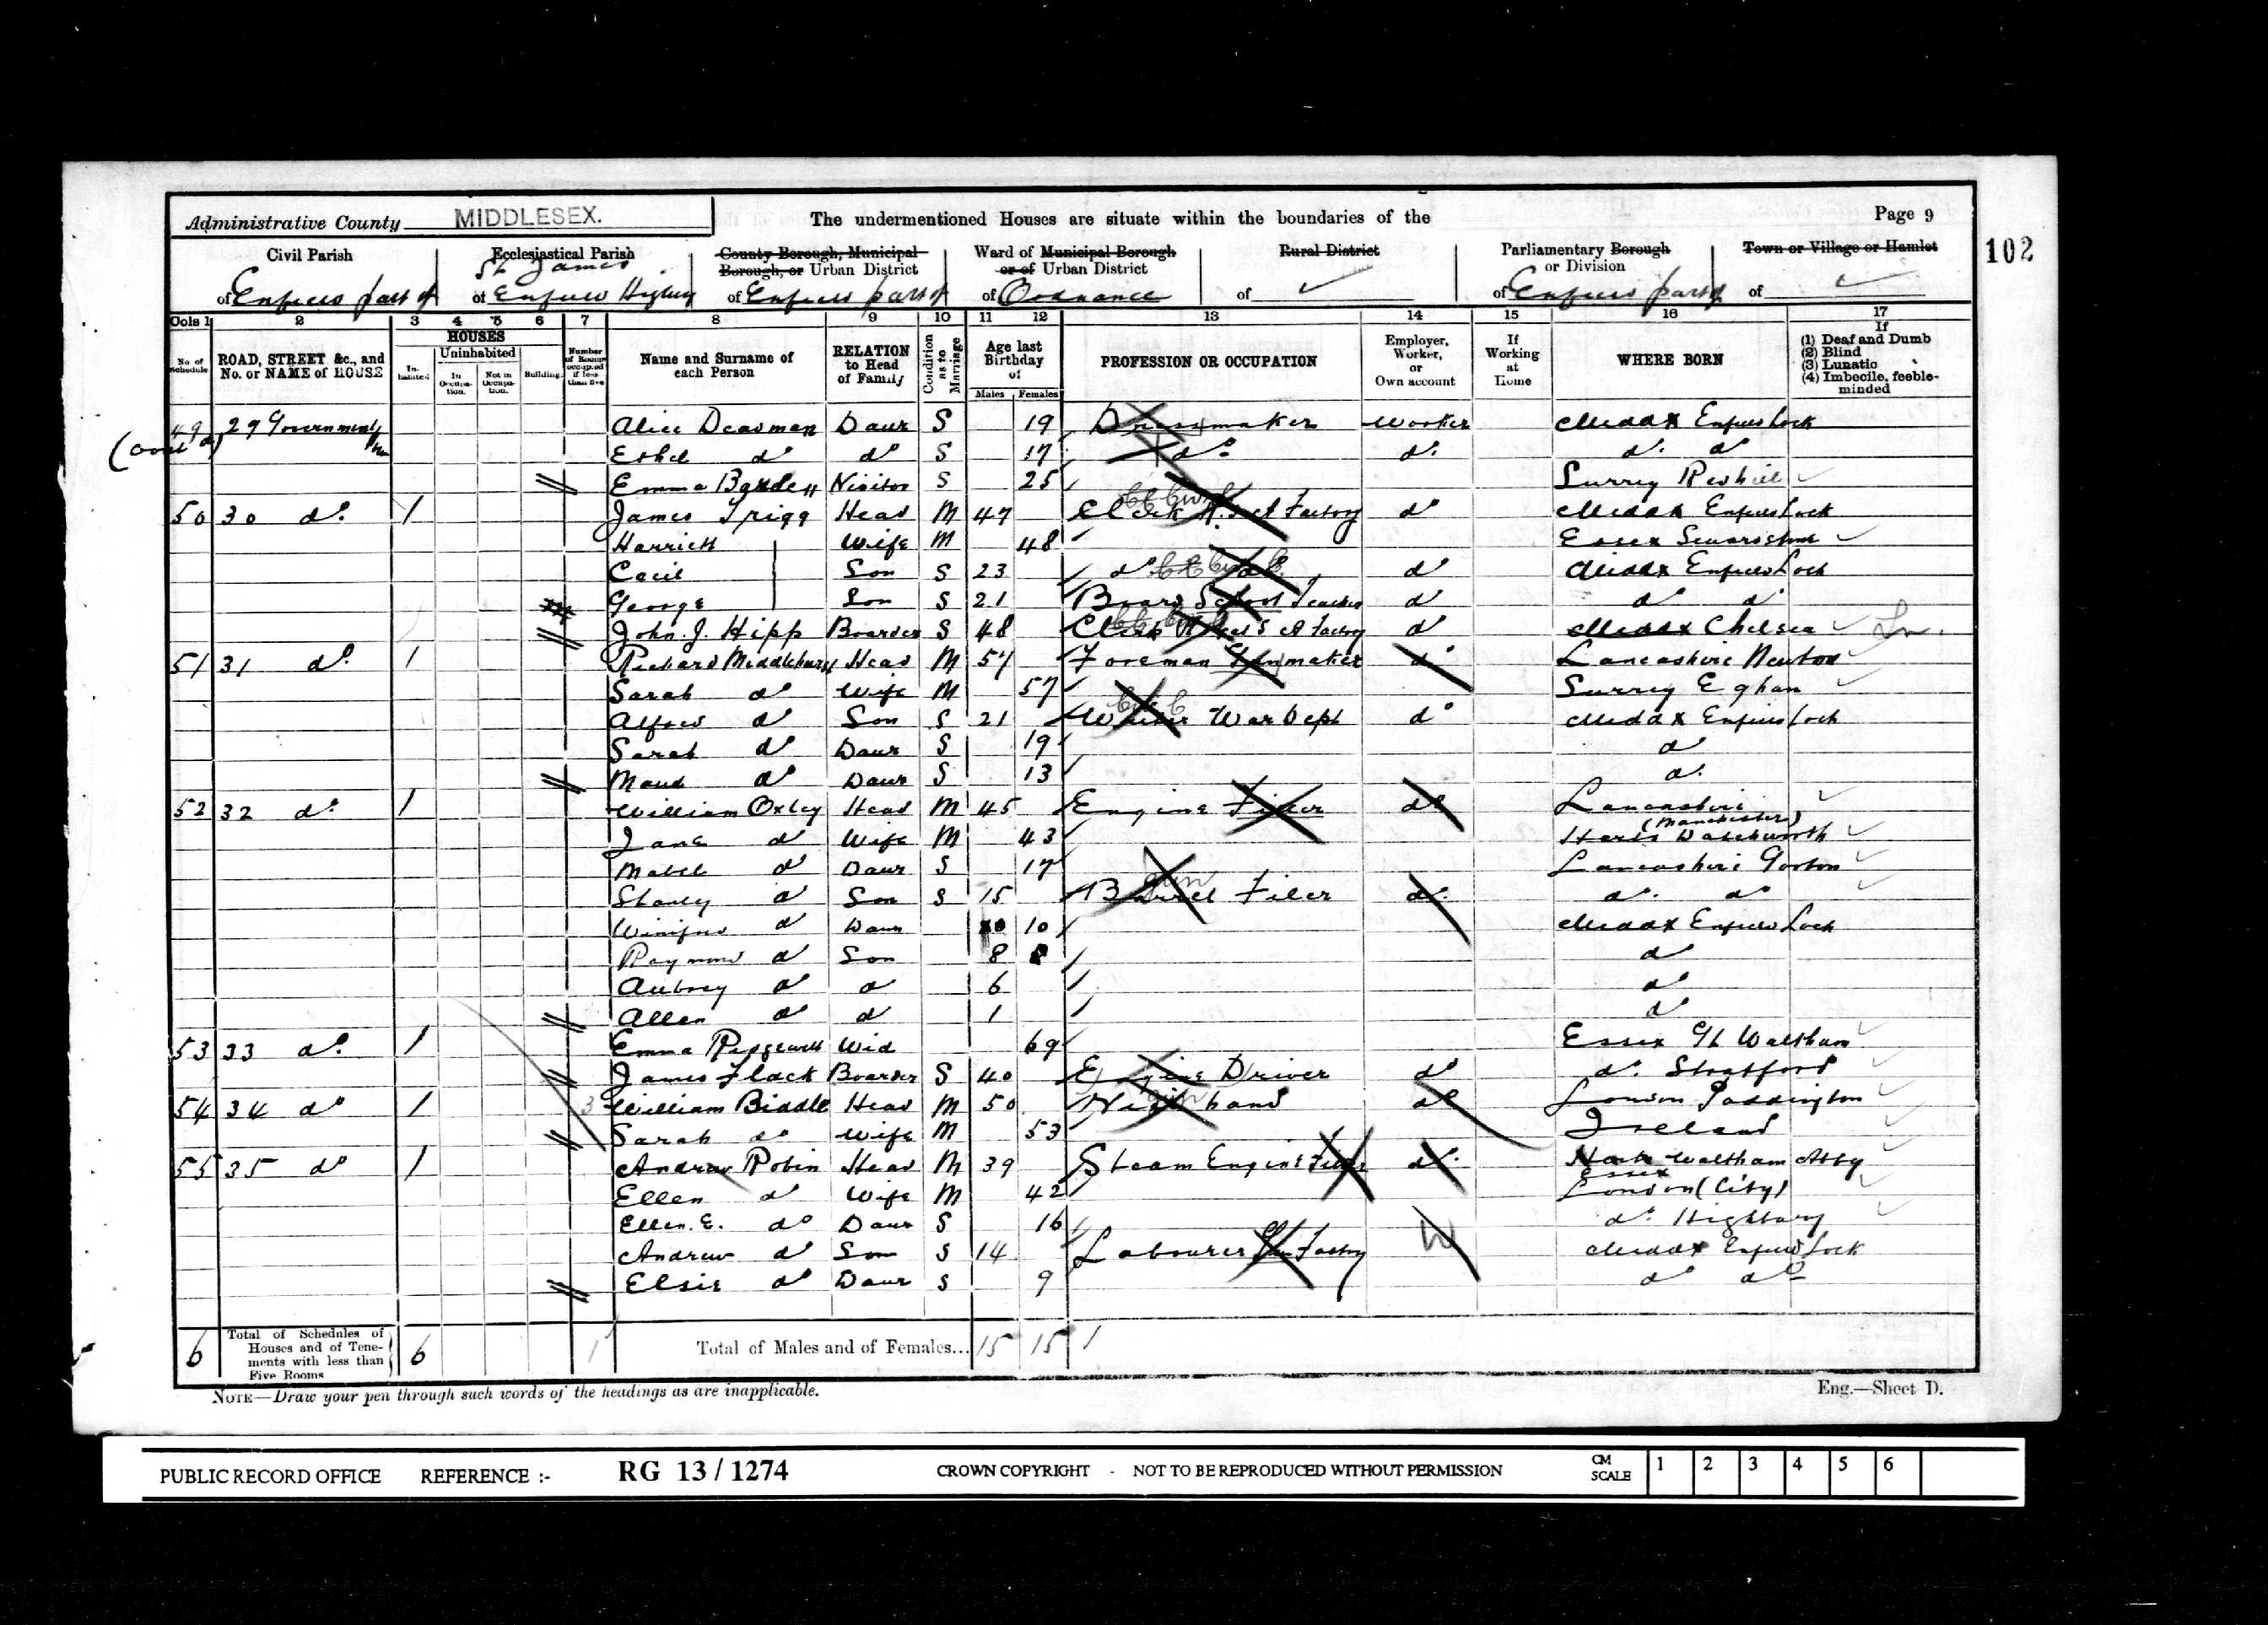 Administrative County MIDDLESEX.
The undermentioned Houses are situate within the boundaries of the
Page 9
102
Civil Parish
of Enfield part of
Ecclesiastical Parish
St James
of Enfield Highway
County Borough, Municipal Borough, or Urban District
of Enfield part of
Ward of Municipal Borough or of Urban District
of Ordnance
Rural District
of
Parliamentary Borough or Division
of Enfield part of
Town or Village or Hamlet
of
Cols 1 2 3 4 5 6 7 8 9 10 11 12 13 14 15 16 17
No. of Schedule
ROAD, STREET &c., and No. or NAME of HOUSE
HOUSES
Inhabited
Uninhabited
In Occupation.
Not in Occupation.
Building
Number of Rooms occupied if less than five
Name and Surname of each Person
RELATION to Head of Family
Condition as to Marriage
Age last Birthday of
Males Females
PROFESSION OR OCCUPATION
Employer, Worker, or Own account
If Working at Home
WHERE BORN
If
(1) Deaf and Dumb
(2) Blind
(3) Lunatic
(4) Imbecile, feeble-minded
49 (contd) 29 Government Alice Deadman Daur S 19 Dressmaker Worker Middx Enfield Lock
Ethel do do S 17 do do do do
Emma Visitor S 25 Surrey Redhill
50 30 do 1 James Trigg Head M 47 Clerk R. S. A Factory do Middx Enfield Lock
Harriett Wife M 48 Essex Sewardstone
Cecil Son S 23 do do do Middx Enfield Lock
George Son S 21 Board School Teacher do do do
John. J. Hipp Boarder S 48 Clerk S A Factory do Middx Chelsea
51 31 do 1 Richard Middlehurst Head M 57 Foreman Gunmaker do Lancashire Newton
Sarah do Wife M 57 Surrey Egham
Alfred do Son S 21 Writer War Dept do Middx Enfield Lock
Sarah do Daur S 19 do
Maud do Daur S 13 do
52 32 do 1 William Oxley Head M 45 Engine Fitter do Lancashire (Manchester)
Jane do Wife M 43 Herts Datchworth
Mabel do Daur S 17 Lancashire Gorton
Stanley do Son S 15 Barrel Filer do do do
Gun
Winifred do Daur 10 Middx Enfield Lock
Raymond do Son 8 do
Aubrey do do 6 do
Allen do do 1 do
53 33 do 1 Emma Ridgewell Wid 69 Essex Gt Waltham
James Flack Boarder S 40 Engine Driver do do Stratford
54 34 do 1 3 William Biddle Head M 50 hand do London Paddington
Sarah do Wife M 53 Ireland
55 35 do 1 Andrew Robin Head M 39 Steam Engine Fitter do Herts Waltham Abby
Essex
Ellen do Wife M 42 London (City)
Ellen. E. do Daur S 16 do Highbury
Andrew do Son S 14 Labourer Gun Factory W Middx Enfield Lock
Elsie do Daur S 9 do do
6 Total of Schedules of Houses and of Tenements with less than Five Rooms 6 1 Total of Males and of Females... 15 15
NOTE—Draw your pen through such words of the headings as are inapplicable.
Eng.—Sheet D.
PUBLIC RECORD OFFICE REFERENCE :- RG 13 / 1274 CROWN COPYRIGHT - NOT TO BE REPRODUCED WITHOUT PERMISSION CM SCALE 1 2 3 4 5 6